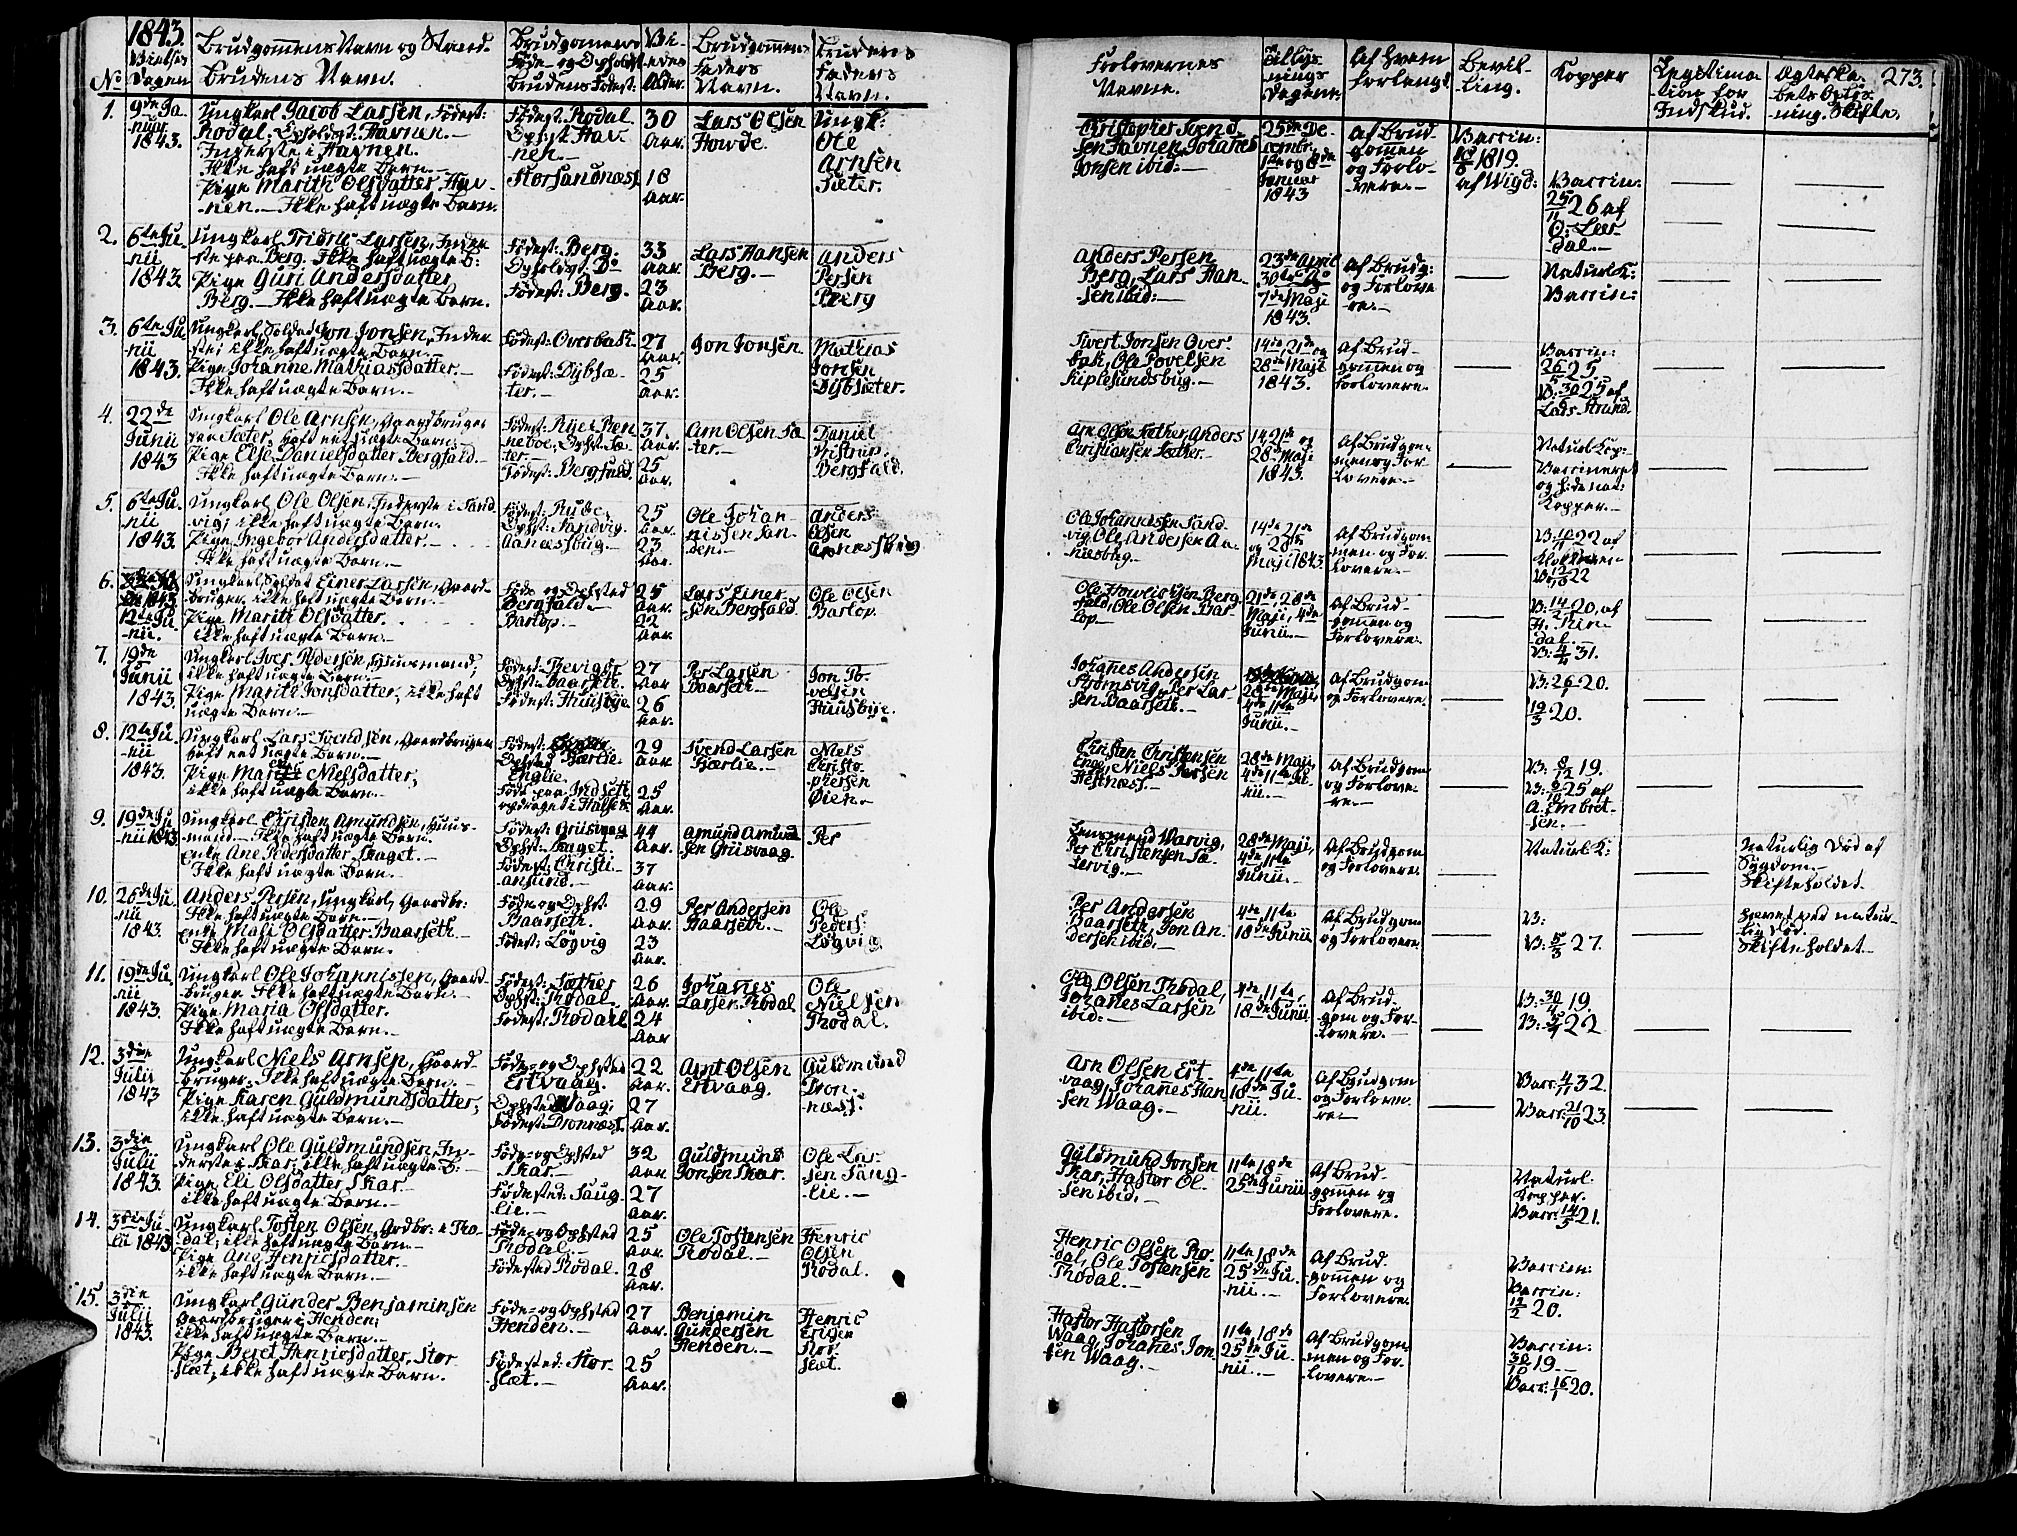 1843.
Vielses
Dagen
No
Brudgommens Navn og Stand.
Brudens Navn.
Brudgommens
Føde- og Opholdst.
Brudens Fødest:
Vi-
edes
Alder.
Brudgommens
Faders
Navn.
Brudens
Faders
Navn.
1.
9de Ja-
nuar
1843.
Ungkarl Jacob Larsen, Fødest:
Rodal, Opholdst: Havnen.—
Inderste i Havnen.
Ikke haft uægte Børn.—
Pige Marith Olsdatter, Hav-
nen.— Ikke haft uægte Børn.
Fødest: Rodal
Ophst: Hav-
nen.—
Storsandnæss
30
Aar.
18
Aar.
Lars Olsen
Howde.
Ungk:
Ole
Arnsen
Sæter.
2.
6te Ju-
nii
1843.
Ungkarl Fridric Larsen, Inder-
ste paa Berg. Ikke haft uægte B:
Pige Guri Andersdatter
Berg.— Ikke haft uægte Børn.
Fødest: Berg.
Opholdst: Do
Fødest: Berg.
33
Aar.
23
Aar.
Lars Hansen
Berg.—
Anders
Persen
Berg
3.
6te Ju-
nii
1843.
Ungkarl, Soldat Jon Jonsen, Inder-
ste; ikke haft uægte Børn.—
Pige Johanne Mathiasdatter.—
Ikke haft uægte Børn.
Fødest: Overbak
Fødest: Dybsæ-
ter.—
27
Aar.
25
Aar.
Jon Jonsen
Mathias
Jonsen
Dybsæter.
4.
22de
Junii
1843
Ungkarl Ole Arnsen, Gaardbruger
paa Sæter. haft eet uægte Barn.
Pige Else Danielsdatter Bergfald.—
Ikke haft uægte Børn.—
Fødest: Bergfald.
37.
Aar.
25
Aar.
Arn Olsen Sæ-
ter.—
Daniel
Bergfald.
5.
6te Ju-
nii
1843.
Ungkarl Ole Olsen, Inderste i Sand-
vig; ikke haft uægte Børn.
Pige Ingebor Andersdatter.—
Ikke haft uægte Børn.—
Ophst: Sandvig.
Aanæssbug.—
25
Aar.
23
Aar.
Ole Johan-
nissen San-
den.—
Anders
Olsen
Aanessbug
6.
12te Ju-
nii.
Ungkarl, Soldat Einer Larsen, Gaard-
bruger. ikke haft uægte Børn.—
Pige Marith Olsdatter.
ikke haft uægte Børn.—
Føde og Ophsted
Bergfald.—
Barlop.—
25
Aar.
22
Aar.
Lars Einer-
sen Bergfald.
Ole Olsen
Barlop.
7.
19de
Junii
1843.
Ungkarl Iver Pedersen, Huusmand;
ikke haft uægte Børn.—
Pige Marith Jonsdatter; ikke haft
uægte Børn.—
Ophst: Baarseth.
Fødest: Huusbye
27
Aar
26
Aar.
Per Larsen
Baarseth.—
Jon Po-
velsen
Huusbye.
8.
12te Ju-
nii
1843.
Ungkarl Lars Svendsen, Gaardbruger
haft eet uægte Barn.—
Pige Marith Nielsdatter;
ikke haft uægte Børn.—
29
Aar.
25
Aar.
Svend Larsen
Bærlie.—
Niels
Christo-
phersen
Øien.—
9.
19de Ju-
nii 1843
Ungkarl Christen Amundsen, Huus-
mand.— Ikke haft uægte Børn.
Enke Ane Pedersdatter Skaget.—
Ikke haft uægte Børn.
Fødest: Griisvaag
Ophst: Skaget.
Fødest: Christi-
ansund.—
44
Aar.
37
Aar.
Amund Amund-
sen Griisvaag.
Per
10.
26de Ju-
nii
1843.
Anders Persen, Ungkarl, Gaardbr:
Ikke haft uægte Børn.—
Enke Mali Olsdatter Baarseth.—
Ikke haft uægte Børn.
Føde og Ophst:
Baarseth.
Fødest: Løgvig
29
Aar.
23
Aar.
Per Andersen
Baarseth.—
Ole
Peders:
Løgvig
11.
19de Ju-
nii
1843.
Ungkarl Ole Johannissen, Gaard-
bruger. Ikke haft uægte Børn.—
Pige Maria Olsdatter.
Ikke haft uægte Børn.—
Fødest: Sæther
Ophst: Rodal
Fødest: Rodal
26
Aar.
24
Aar
Johanes
Larsen Rodal
Ole
Nielsen
Rodal.
12.
3die
Julii
1843
Ungkarl Niels Arnsen, Gaard-
bruger. Ikke haft uægte Børn.—
Pige Karen Guldmundsdatter;
ikke haft uægte Børn.—
Føde- og Ophsted
Ertvaag.
Ophsted Waag;
Fødest: Dronnæss.
22
Aar.
27
Aar.
Arnt Olsen
Ertvaag.
Guldmund
Dron-
næss.
13.
3die
Julii
1843.
Ungkarl Ole Guldmundsen, In-
derste i Skar, ikke haft uægte B:—
Pige Eli Olsdatter Skar
ikke haft uægte Børn.
Føde- og Ophsted
Skar
Fødested: Saug-
lie.—
32
Aar
27
Aar.
Guldmund
Jonsen Skar.
Ole Lar-
sen Saug-
lie.—
14.
3die Ju-
lii 1843
Ungkarl Tosten Olsen, Grdbr: i Ro-
dal; ikke haft uægte Børn.—
Pige Ane Henricsdatter.—
ikke haft uægte Børn.—
Føde- og Ophsted
Rodal.—
Fødested Rodal.
25
Aar.
28
Aar.
Ole Tostensen
Rodal.—
Henric
Olsen
Rodal.
15.
3die
Julii
1843.
Ungkarl Gunder Benjaminsen
Gaardbruger i Henden;
ikke haft uægte Børn.—
Pige Beret Henricsdatter, Stor-
slæt, ikke haft uægte Børn.
Føde- og Ophsted
Henden.—
Fødested: Stor-
slæt.—
27
Aar.
25
Aar.
Benjamin
Gundersen
Henden.—
Henric
Stor-
slæt.
Forlovernes
Navne.
Tillys-
nings
Dagene
Af hvem
forlangt
Bevil-
ling.
Kopper
Legitima-
tion for
Indskud.
Ægteska-
bets Opløs-
ning. Skifte.
273.
Christopher Svend-
sen Havnen, Johanes
Jonsen ibid:—
25de De-
cembr.
1ste og 8de
Januar
1843
Af Brud-
gomen
og Forlo-
vere.—
Vaccin:
18/8 1819.
af Wigd:
Vaccin:
25/11 26 af
O: Leer-
dal.—
Anders Persen
Berg, Lars Han-
sen ibid:—
23de April
30te og
7de Maji
1843.
Af Brudg:
og Forlove-
re.—
Naturl: K:
Vaccin:
Sivert Jonsen Over-
bak, Ole Povelsen
Kiplesundsbug.—
14de, 21de og
28de Maji
1843.
Af Brud-
gomen og
Forlovere.
Vaccin:
26/5 25.
V: 30/6 25 af
Lars Strand.
Arn Olsen Sæther, Anders
Christiansen Sæther.—
14, 21de og
28de Maji
1843.
Af Brudgom-
men og For-
lovere.—
Naturl: Kop:
Vaccineret
og hidenat:
Kopper.—
Ole Johannessen Sand-
vig, Ole Andersen Aa-
næsbug.—
14de 21de
og 28de
Maji 1843.
Af Brudgom-
men og For-
lovere.—
V: 10/11 22 af
V: 12/10 22
Ole Olsen Bar-
lop.—
21de 28de
Maji, 4de
Junii.—
Af Brud-
gomen og
Forlovere.
V: 14/2 20, af
H. Rin-
dal.—
V: 4/4 31.
Johanes Andersen
Strømsvig, Per Lar-
sen Baarseth.—
28de Maji,
4de, 11te
Junii.—
Af Brudgom
og Forlovere.—
V: 26/1 20.
19/3 20.
Christen Christensen
Enge, Niels Persen
Hestnæss.—
28de Maji
4de 11te Ju-
nii.—
Af Brudgom
og Forlove-
re.—
V: 8/12 19.
V: 6/10 25 af
A. Embret-
sen.
Lensmand Warvig,
Per Christensen Sæ-
tervig.—
28de Maji,
4de, 11te
Junii.—
Af Brudgom
og Forlovere.
Naturl: K:
Naturlig Død af
Sygdom.—
Skifte holdet.
Per Andersen
Baarseth, Jon An-
dersen ibid.—
4de, 11te,
18de Junii
Af Brudgom
og Forlovere.
V:
V: 5/3 27.
Hævet ved natur-
lig Død.
Skifte holdet.—
Ole Olsen Rodal,
Johanes Larsen
ibid:—
4de 11te,
18de Junii
Af Brud-
gom og For-
lovere.—
V: 30/4 19.
V: 5/7 22
Arn Olsen Ert-
vaag, Johanes Han-
sen Waag.—
4de 11te
18de Ju-
nii.
Af Brudgom
og Forlove-
re.—
Vacc: 4/11 32.
Vacc: 21/10 23.
Guldmund Jonsen
Skar, Hastor Ol-
sen ibid.—
11te 18de
25de Junii
Af Brud-
gomen og
Forlovere.
Naturl.
Kopper.
Vacc: 14/5 21.
Henric Olsen Ro-
dal, Ole Tostensen
Rodal.—
11te 18de
25de Ju-
nii.—
Af Brud-
gomen og
Forlovere.
Vaccin:
Vaccin:
12/2 20.
Hastor Hastorsen
Waag, Johanes Jon-
sen Waag.—
11te, 18de
25de Ju-
nii.—
Af Brudgom-
men og For-
lovere.—
Vaccin:
30/10 19.—
Vacc: 16/1 20.